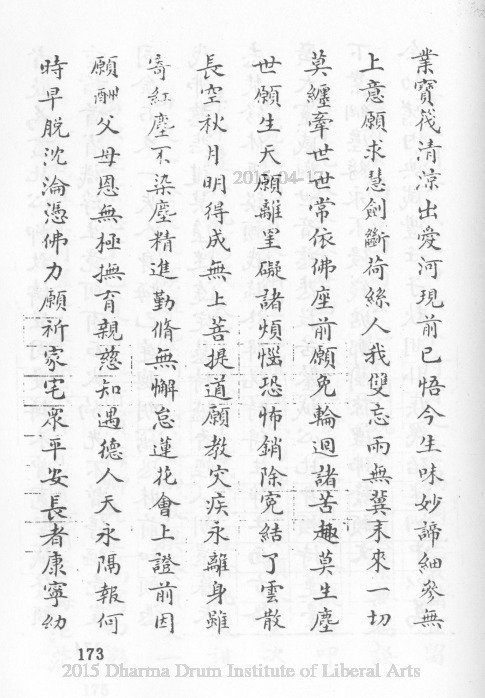 業寶筏清凉出愛河現前已悟今生味妙諦細參無
上意願求慧劍斷荷絲人我雙忘兩無冀未來一切
莫纏牽世世常依佛座前願免輪迴諸苦趣莫生塵
世願生天願離罣礙諸煩惱恐怖銷除寃結了雲散
長空秋月明得成無上菩提道願教灾疾永離身雖
寄紅塵不染塵精進勤脩無懈怠蓮花會上證前因
願酬父母恩無極撫育親慈知遇德人天永隔報何
時早脱沈淪憑佛力願祈家宅眾平安長者康寧幼
173
2015-04-17
2015 Dharma Drum Institute of Liberal Arts